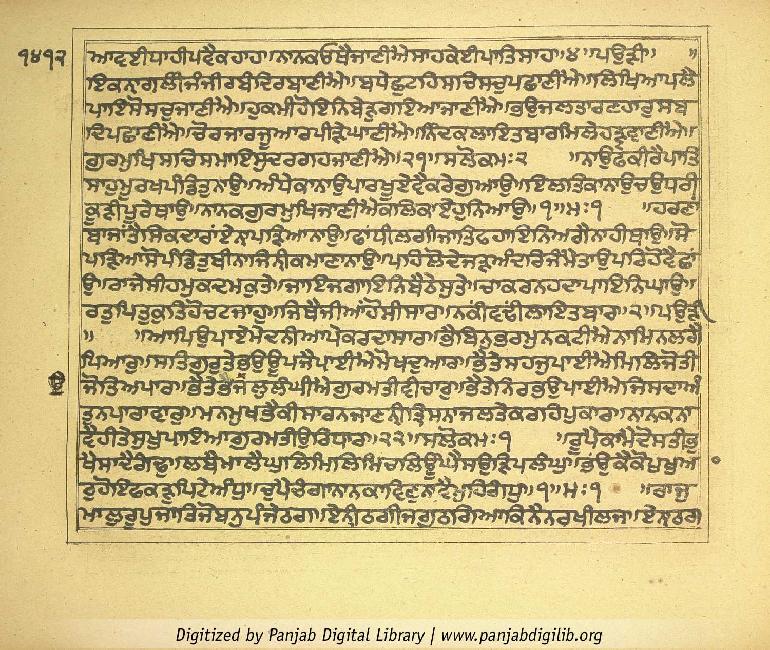 ੧੪੧੨ ਆਵਈ ਧਾਹੀ ਪਵੈ ਕਹਾਹਾ॥ਨਾਨਕ ਓਥੈ ਜਾਣੀਐ ਸਾਹ ਕੇਈ ਪਾਤਿਸਾਹ॥੪॥ਪਉੜੀ॥
ਇਕਨ੍ਹਾ ਗਲੀਂ ਜੰਜੀਰ ਬੰਦਿ ਰਬਾਣੀਐ॥ਬਧੇ ਛੁਟਹਿ ਸਚਿ ਸਚੁ ਪਛਾਣੀਐ॥ਲਿਖਿਆ ਪਲੈ
ਪਾਇ ਸੋ ਸਚੁ ਜਾਣੀਐ॥ਹੁਕਮੀ ਹੋਇ ਨਿਬੇੜੁ ਗਇਆ ਜਾਣੀਐ॥ਭਉਜਲ ਤਾਰਣਹਾਰੁ ਸਬ
ਦਿ ਪਛਾਣੀਐ॥ਚੋਰ ਜਾਰ ਜੂਆਰ ਪੀੜੇ ਘਾਣੀਐ॥ਨਿੰਦਕ ਲਾਇਤਬਾਰ ਮਿਲੇ ਹੜ੍ਹਵਾਣੀਐ॥
ਗੁਰਮੁਖਿ ਸਚਿ ਸਮਾਇ ਸੁ ਦਰਗਹ ਜਾਣੀਐ॥੨੧॥ਸਲੋਕ ਮਃ੨ ॥ਨਾਉ ਫਕੀਰੈ ਪਾਤਿ
ਸਾਹੁ ਮੂਰਖ ਪੰਡਿਤੁ ਨਾਉ॥ਅੰਧੇ ਕਾ ਨਾਉ ਪਾਰਖੂ ਏਵੈ ਕਰੇ ਗੁਆਉ॥ਇਲਤਿ ਕਾ ਨਾਉ ਚਉਧਰੀ
ਕੂੜੀ ਪੂਰੇ ਥਾਉ॥ਨਾਨਕ ਗੁਰਮੁਖਿ ਜਾਣੀਐ ਕਲਿ ਕਾ ਏਹੁ ਨਿਆਉ॥੧॥ਮਃ੧ ॥ਹਰਣਾਂ
ਬਾਜਾਂ ਤੈ ਸਿਕਦਾਰਾਂ ਏਨ੍ਹਾ ਪੜ੍ਹਿਆ ਨਾਉ॥ਫਾਂਧੀ ਲਗੀ ਜਾਤਿ ਫਹਾਇਨਿ ਅਗੈ ਨਾਹੀ ਥਾਉ॥ਸੋ
ਪੜਿਆ ਸੋ ਪੰਡਿਤੁ ਬੀਨਾ ਜਿਨ੍ਹੀ ਕਮਾਣਾ ਨਾਉ॥ਪਹਿਲੋ ਦੇ ਜੜ ਅੰਦਰਿ ਜੰਮੈ ਤਾ ਉਪਰਿ ਹੋਵੈ ਛਾਂ
ਉ॥ਰਾਜੇ ਸੀਹ ਮੁਕਦਮ ਕੁਤੇ॥ਜਾਇ ਜਗਾਇਨਿ ਬੈਠੇ ਸੁਤੇ॥ਚਾਕਰ ਨਹਦਾ ਪਾਇਨਿ ਘਾਉ॥
ਰਤੁ ਪਿਤੁ ਕੁਤਿਹੋ ਚਟਿ ਜਾਹੁ॥ਜਿਥੈ ਜੀਆਂ ਹੋਸੀ ਸਾਰ॥ਨਕੀਂ ਵਢੀਂ ਲਾਇਤਬਾਰ॥੨॥ਪਉੜੀ
॥ ॥ਆਪਿ ਉਪਾਏ ਮੇਦਨੀ ਆਪੇ ਕਰਦਾ ਸਾਰ॥ਭੈ ਬਿਨੁ ਭਰਮੁ ਨ ਕਟੀਐ ਨਾਮਿ ਨ ਲਗੈ
ਪਿਆਰੁ॥ਸਤਿਗੁਰ ਤੇ ਭਉ ਊਪਜੈ ਪਾਈਐ ਮੋਖ ਦੁਆਰ॥ਭੈ ਤੇ ਸਹਜੁ ਪਾਈਐ ਮਿਲਿ ਜੋਤੀ
ਜੋਤਿ ਅਪਾਰ॥ਭੈ ਤੇ ਭੈਜਲੁ ਲੰਘੀਐ ਗੁਰਮਤੀ ਵੀਚਾਰੁ॥ਭੈ ਤੇ ਨਿਰਭਉ ਪਾਈਐ ਜਿਸ ਦਾ ਅੰ
ਤੁ ਨ ਪਾਰਾਵਾਰੁ॥ਮਨਮੁਖ ਭੈ ਕੀ ਸਾਰ ਨ ਜਾਣਨੀ ਤ੍ਰਿਸਨਾ ਜਲਤੇ ਕਰਹਿ ਪੁਕਾਰ॥ਨਾਨਕ ਨਾ
ਵੈ ਹੀ ਤੇ ਸੁਖੁ ਪਾਇਆ ਗੁਰਮਤੀ ਉਰਿ ਧਾਰ॥੨੨॥ਸਲੋਕ ਮਃ੧ ॥ਰੂਪੈ ਕਾਮੈ ਦੋਸਤੀ ਭੁ
ਖੈ ਸਾਦੈ ਗੰਢੁ॥ਲਬੈ ਮਾਲੈ ਘੁਲਿ ਮਿਲਿ ਮਿਚਲਿ ਊਂਘੈ ਸਉੜਿ ਪਲੰਘੁ॥ਭੰਉਕੈ ਕੋਪੁ ਖੁਆ
ਰੁ ਹੋਇ ਫਕੜੁ ਪਿਟੇ ਅੰਧੁ॥ਚੁਪੈ ਚੰਗਾ ਨਾਨਕਾ ਵਿਣੁ ਨਾਵੈ ਮੁਹਿ ਗੰਧੁ॥੧॥ਮਃ੧ ॥ਰਾਜੁ
ਮਾਲੁ ਰੂਪੁ ਜਾਤਿ ਜੋਬਨੁ ਪੰਜੇ ਠਗ॥ਏਨੀ ਠਗੀਂ ਜਗੁ ਠਗਿਆ ਕਿਨੈ ਨ ਰਖੀ ਲਜ॥ਏਨਾ ਠਗ
Digitized by Panjab Digital Library | www.panjabdigilib.org